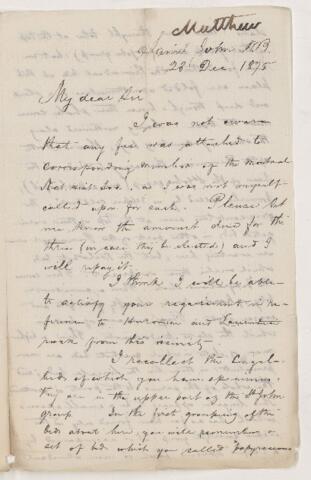 Matthew
Saint John N.B.
28 Dec. 1875
My dear Sir
I was not aware
that any fee was attached to
corresponding member of the
Nat. Hist. Soc., as I was not myself
called upon for such. Please let
me know the amount due for the
three (in case they be elected) and I
will repay it.
I think I will be able
to satisfy your requirement in re-
ference to Huronian and Laurentian
rock from this vicinity
I recollect the
beds of which you have specimens
They are in the upper part of the St John
group. In the first grouping of the
beds about here, you will remember a
set of beds which you called "papyraceous